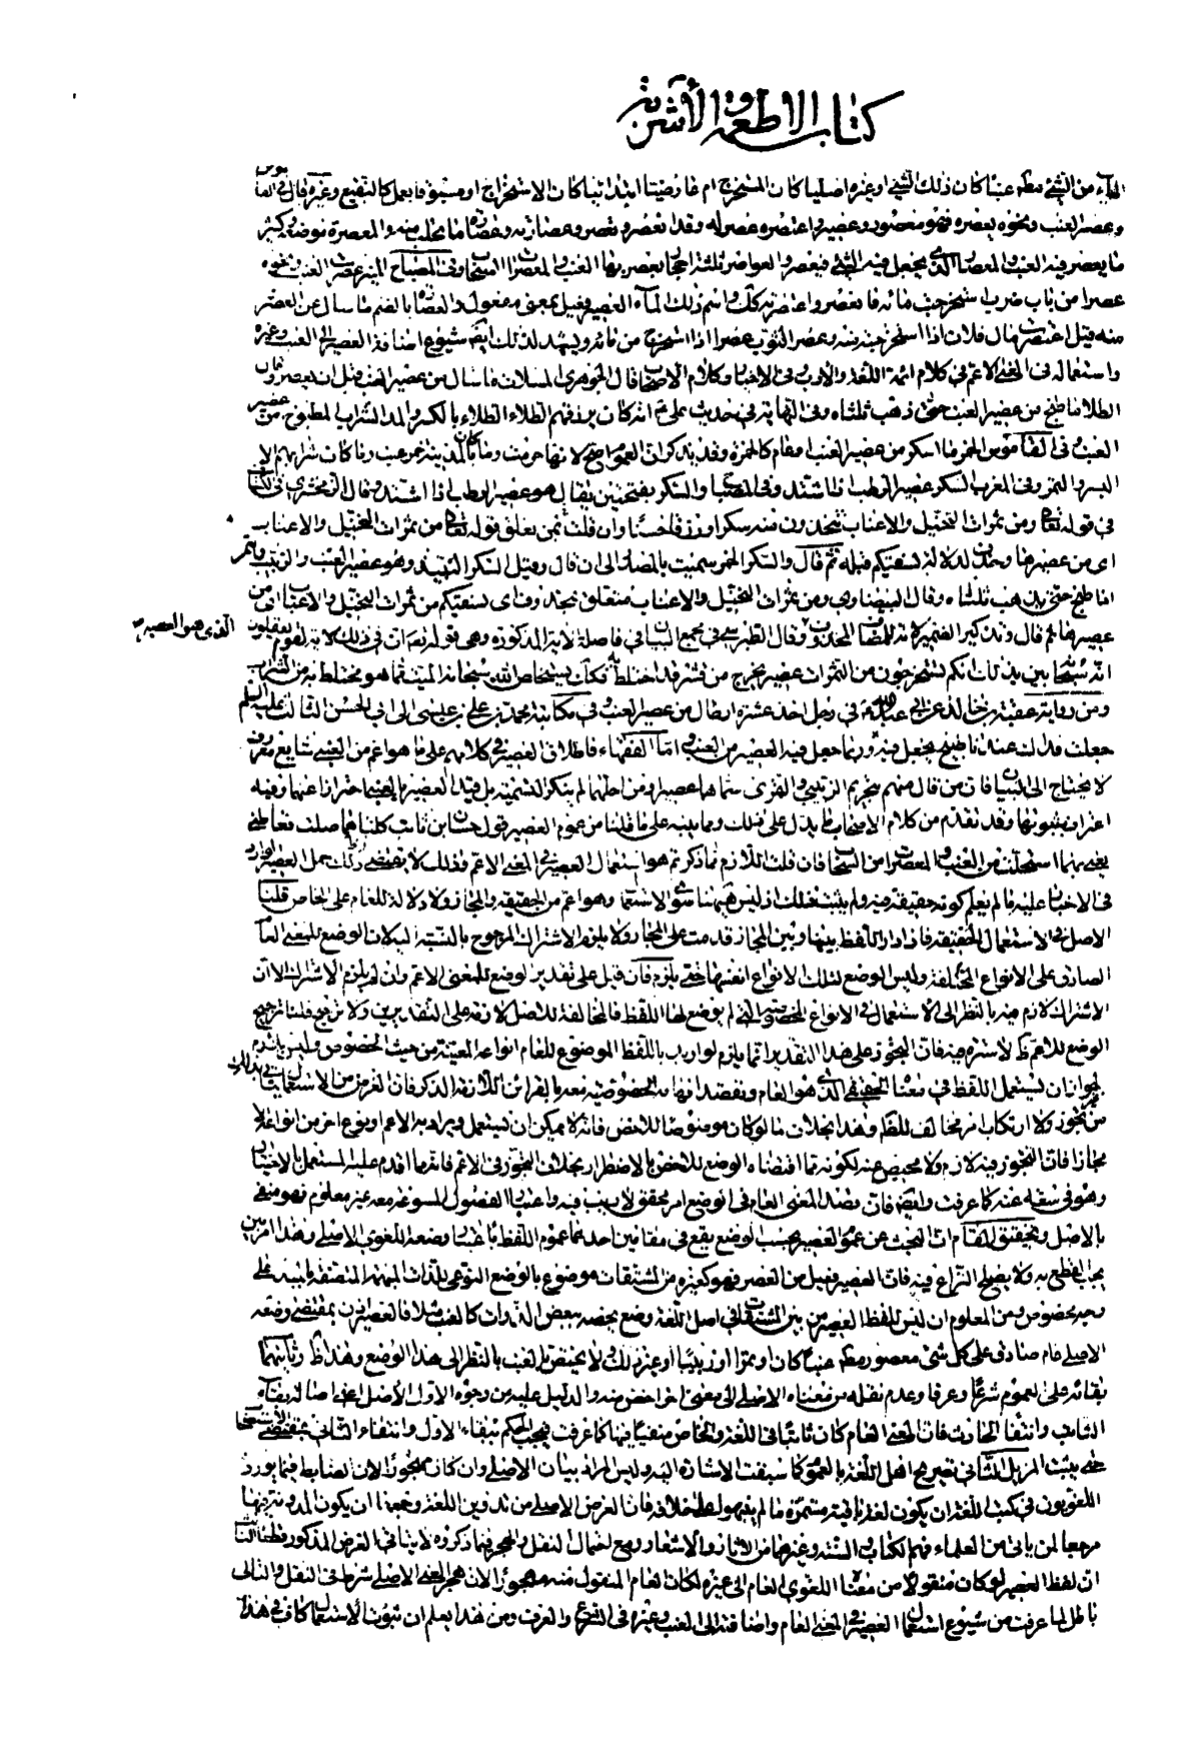 كتاب الاطعمة والأشربة
الماء من الشئ مطلقا عنبا كان ذلك الشئ او غيره اصليا كان المستخرج ام عارضيا ابتدائيا كان الاستخراج او مسبوقا بعمل كالنقيع وغيره قال في القاموس
وعصر العنب ونحوه يعصره فهو معصور وعصير واعتصره عصر له وقد انعصر وتعصر وعصارته وعصاره ما تحلب منه والمعصرة موضعه وكمنبر
ما يعصر فيه العنب والمعصار الذي يجعل فيه الشئ فيعصر والعواصر ثلثة احجار يعصر بها العنب والمعصرات السحاب وفي المصباح المنير عصرت العنب ونحوه
عصرا من باب ضرب استخرجت مائه فانعصر واعتصرته كك واسم ذلك الماء العصير فعيل بمعنى مفعول والعصارة بالضم ما سال عن العصر
منه قيل اعتصرت مال فلان اذا استخرجته منه وعصر الثوب عصرا اذا استخرج من مائه ويشهد لذلك ايضا شيوع اضافة العصير الى العنب وغيره
واستعماله في المعنى الاعم في كلام ائمة اللغة والادب وفي الاخبار وكلام الاصحاب قال الجوهري السلاف ما سال من عصير العنب قبل ان يعصر وان
الطلا ما طبخ من عصير العنب حتى ذهب ثلثاه وفي النهاية في حديث علي ع انه كان يرزقهم الطلاء الطلاء بالكسر والمد الشراب المطبوخ من عصير
العنب وفي القاموس الخمر ما اسكر من عصير العنب او عام كالخمرة وقد يذكر او العموم اصح لانها حرمت وما بالمدينة خمر عنب وما كان شرابهم الا
البسر والتمر وفي المغرب السكر عصير الرطب اذا اشتد وفي المصباح والسكر بفتحتين يقال هو عصير الرطب اذا اشتد وقال الزمخشري في الكشاف
في قوله تعالى ومن ثمرات النخيل والاعناب تتخذون منه سكرا ورزقا حسنا وان قلت بمن يتعلق قوله تعالى من ثمرات النخيل والاعناب
اى من عصيرها وحذف لدلالة نسقيكم قبله ثم قال والسكر الخمر سميت بالمصدر الى ان قال وقيل السكر النبيذ وهو عصير العنب والزبيب والتمر
اذا طبخ حتى يذهب ثلثاه وقال البيضاوي ومن ثمرات النخيل والاعناب متعلق بمحذوف اى نسقيكم من ثمرات النخيل والاعناب اى من
عصيرهما ثم قال وتذكير الضمير لانه للمضاف المحذوف وقال الطبرسي في مجمع البيان في فاصلة لاية المذكورة وهي قوله تعالى ان في ذلك لاية لقوم يعقلون
الذي هو العصير
انه سبحانه بين بذلك انكم تستخرجون من الثمرات عصير يخرج من قشر قد اختلط به فكك يستخلص الله سبحانه الميت مما هو مختلط به من التراب
ومن رواية عقبة بن خالد عن ابي عبد الله ع في رجل اخذ عشرة ارطال من عصير العنب وفي مكاتبة محمد بن علي بن عيسى الى ابي الحسن الثالث عليه السلم
جعلت فداك عندنا طبيخ يجعل فيه وربما جعل فيه العصير من العنب واما الفقهاء فاطلاق العصير في كلامهم على ما هو اعم من العنبي شايع معروف
لا يحتاج الى البيان فان من قال منهم بتحريم الزبيبي والتمري سماهما عصيرا ومن احلهما لم ينكر التسمية بل قيد العصير بالعنبي احترازا عنهما وفيه
اعتراف بثبوتها وقد تقدم من كلام الاصحاب ما يدل على ذلك ومما ينبه على ما قلنا من عموم العصير قول حسان ابن ثابت كلتاهما حلب العصير فعاطني
يعني بهما استحلب من العنب والمعصرات من السحاب فان قلت اللازم مما ذكرتم هو استعمال العصير في المعنى الاعم وذلك لا يقتضي حمل العصير الوارد
في الاخبار عليه ما لم يعلم كونه حقيقة فيه ولم يثبت ذلك اذ ليس هيهنا سوى الاستعمال وهو اعم من الحقيقة والمجاز ولا دلالة للعام على الخاص قلنا
الاصل في الاستعمال الحقيقة فاذا دار اللفظ بينها وبين المجاز قدمت على المجاز ولا يلزم الاشتراك المرجوح بالنسبة اليه لان الوضع للمعنى العام
الصادق على الانواع المختلفة وليس الوضع لتلك الانواع انفسها حتى يلزم فان قيل على تقدير الوضع للمعنى الاعم وان لم يلزم الاشتراك الا ان
الاشتراك لازم فيه بالنظر الى الاستعمال في الانواع الخصوصية التي لم يوضع لها اللفظ فالمخالفة للاصل لازمة على التقديرين ولا ترجيح قلنا ترجيح
الوضع للاعم لا سترة فيه فان التجوز على هذا التقدير انما يلزم لو اريد باللفظ الموضوع للعام انواعه المعينة من حيث الخصوص وليس بلازم
لجواز ان يستعمل اللفظ في معناه الحقيقي الذي هو العام ويقصد افهام الخصوصية بعد بالقرائن اللازمة الذكر فان الغرض من الاستعمالات
من تجوز ولا ارتكاب امر مخالف للظ وهذا بخلاف ما لو كان موضوعا للاخص فانه لا يمكن ان يستعمل ويراد به الاعم او نوع اخر من انواعه الا
مجازا فان التجوز فيه لازم ولا محيص عنه لكونه مما اقتضاه الوضع للاخص بالاضطرار بخلاف التجوز في الاعم فانه مما اقدم عليه المستعمل بالاختيار
وهو في سعة عنه كما عرفت وايضا فان قصد المعنى العام في الوضع امر محقق لا ريب فيه واعتبار الفصول المسوغة معه غير معلوم فهو منفي
بالاصل وتحقيق المقام ان البحث عن عموم العصير بحسب الوضع يقع في مقامين احدهما عموم اللفظ باعتبار وضعه اللغوي الاصلي وهذا امر بين
يجب القطع به ولا يصلح النزاع فيه فان العصير فعيل من العصر فهو كغيره من المشتقات موضوع بالوضع النوعي للذات المبهمة المتصفة بالمبدء على
وجه مخصوص ومن المعلوم ان ليس للفظ العصير من بين المشتقات في اصل اللغة وضع يخصه ببعض الذوات كالعنب مثلا فالعصير اذن بمقتضى وضعه
الاصلي عام صادق على كل شئ معصور مطلقا عنبا كان او تمرا او زبيبا او غير ذلك ولا يختص بالعنب بالنظر الى هذا الوضع وهذا ظ وثانيهما
بقائه على العموم شرعا وعرفا وعدم نقله من معناه الاصلي الى معنى اخر اخص منه والدليل عليه من وجوه الاول الاصل اعني اصالة بقاء
الثابت وانتفاء الحادث فان المعنى العام كان ثابتا في اللغة والخاص منفيا فيها كما عرفت فيجب الحكم ببقاء الاول وانتفاء الثاني بمقتضى الاستصحاب
حتى يثبت المزيل الثاني تصريح اهل اللغة بالعموم كما سبقت الاشارة اليه وليس المراد بيان الاصلي وان كان مهجورا الان الضابط فيما يورده
اللغويون في كتب اللغة ان يكون لغة باقية مستمرة ما لم ينبهوا على خلافه فان الغرض الاصلي من تدوين اللغة وجمعها ان يكون المدون منها
مرجعا لمن ياتي من العلماء في فهم الكتاب والسنة وغيرهما من الاثار والاشعار ومع احتمال النقل والهجر فيما ذكروه لا يتاتى الغرض المذكور قطعا الثالث
ان لفظ العصير لو كان منقولا من معناه اللغوي العام الى غيره لكان العام المنقول منه مهجورا لان هجر المعنى الاصلي شرط في النقل والتالي
باطل لما عرفت من شيوع استعمال العصير في المعنى العام واضافته الى العنب وغيره في الشرع والعرف ومن هذا يعلم ان ثبوت الاستعمال كاف في هذا